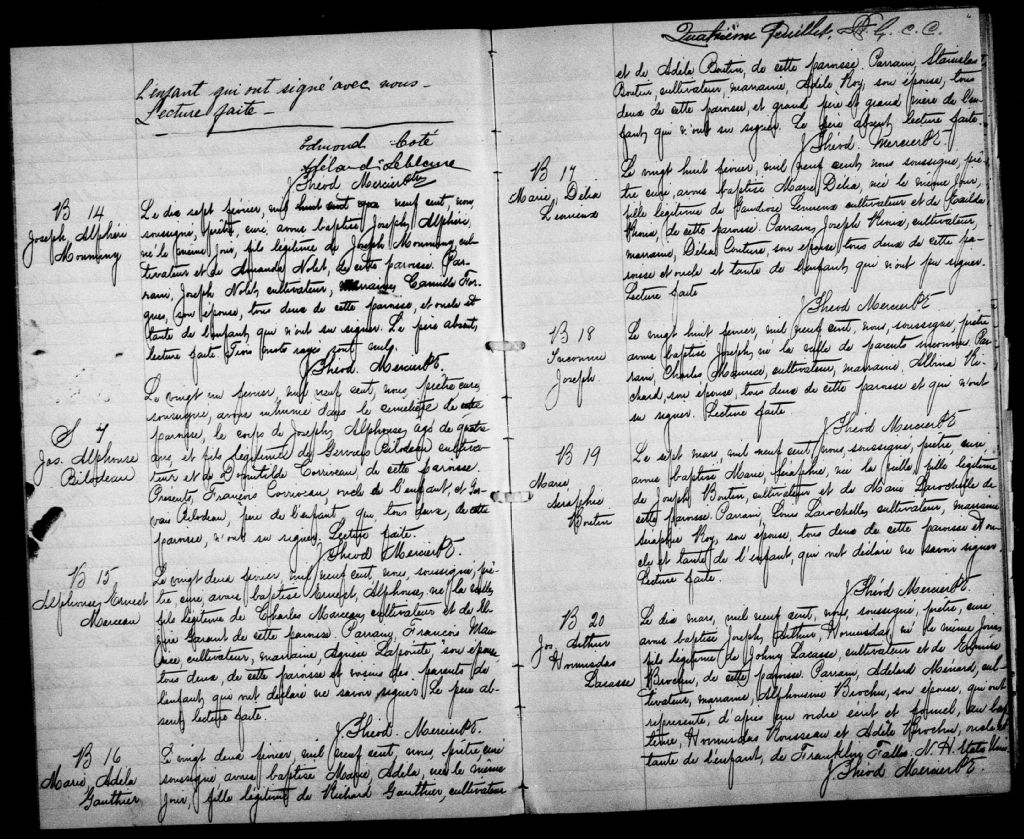 L'enfant qui ont signé avec nous_
Lecture faite_
Edmond Coté
J Théod Mercier Ptre
B 14
Joseph, Alphéri
Mormeny
Le dix sept février, mil huit cent neuf cent, nous,
soussigné, prêtre, curé, avons baptisé Joseph, Alphéri,
né le même jour, fils légitime de Joseph Mormeny cul-
tivateur et de Amanda Nolet, de cette paroisse. Par-
rain, Joseph Nolet, cultivateur, marraine, Camille For-
gues, son épouse, tous deux de cette paroisse, et oncle et
tante de l'enfant, qui n'ont su signer. Le père absent,
lecture faite Trois mots rayés sont nuls.
J Théod. Mercier Ptre.
S 4
Jos. Alphonse
Bilodeau
Le vingt un février, mil neuf cent, nous, prêtre curé,
soussigné, avons inhumé dans le cimetière de cette
paroisse, le corps de Joseph, Alphonse, agé de quatre
ans, et fils légitime de Gervais Bilodeau cultiva-
teur et de Domitilde Corriveau, de cette paroisse.
Présents, François Corriveau, oncle de l'enfant, et Ger-
vais Bilodeau, père de l'enfant qui tous deux, de cette
paroisse, n'ont su signer. Lecture faite.
J Théod Mercier Ptre.
B 15
Alphonse, Ernest
Marceau
Le vingt deux février, mil neuf cent, nous, soussigné, prê-
tre, curé avons baptisé Ernest, Alphonse, né la veille,
fils légitime de Charles Marceau, cultivateur et de
Garant de cette paroisse. Parrain, François Mau-
rice, cultivateur, marraine, Agnese Lapointe son épouse
tous deux, de cette paroisse et voisins des parents de
l'enfant, qui ont déclaré ne savoir signer. Le père ab-
sent, lecture faite.
J Théod. Mercier Ptre.
B 16
Marie, Adela
Gauthier
Le vingt deux février, mil neuf cent, nous, prêtre curé
soussigné avons baptisé Marie Adela, née le même
jour, fille légitime de Richard Gauthier, cultivateur
Quatrième feuillet. C. C.
et de Adéla Boutin, de cette paroisse. Parrain, Stanislas
Boutin, cultivateur, marraine, Adèle Roy, son épouse, tous
deux de cette paroisse, et grand père et grand mère de l'en-
fant, qui n'ont su signer. Le père absent, lecture faite
J Théod. Mercier Ptre.
B 17
Marie, Délia
Lemieux
Le vingt huit février, mil neuf cent, nous soussigné, prê-
tre curé, avons baptisé Marie Délia, née le même jour,
fille légitime de Gaudiose Lemieux cultivateur et de
de cette paroisse. Parrain, Joseph cultivateur,
marraine, Délia Couture, son épouse tous deux de cette pa-
roisse et oncle et tante de l'enfant, qui n'ont pu signer.
Lecture faite
J Théod Mercier Ptre
B 18
Inconnu
Joseph
Le vingt huit fevrier, mil neuf cent, nous, soussigné, prêtre
avons baptisé Joseph, né la veille de parents inconnus. Par-
rain, Charles Maurice, cultivateur, marraine, Albina Ri-
chard, son épouse, tous deux de cette paroisse et qui n'ont
su signer. Lecture faite.
J Théod Mercier Ptre
B 19
Marie
Seraphie
Boutin
Le sept mars, mil neuf cent, nous soussigné, prêtre curé
avons baptisé Marie, Séraphie, née la veille, fille légitime
de Joseph Boutin, cultivateur et de Marie Larochelle de
cette paroisse. Parrain, Louis Larochelle, cultivateur, marraine
Seraphie Roy, son épouse, tous deux de cette paroisse et on-
cle et tante de l'enfant, qui ont déclaré ne savoir signer
Lecture faite.
J Théod Mercier Ptre.
B 20
Jos, Arthur
Hormisdas
Lacasse
Le dix mars, mil neuf cent, nous, soussigné, prêtre, curé,
avons baptisé Joseph, Arthur, Hormisdas, né le même jour,
fils légitime de Johny Lacasse, cultivateur et de
Brochu, de cette paroisse. Parrain, Adelard Ménard, cul-
tivateur, marraine, Alphonsine Brochu, son épouse, qui ont
représenté, d'après un ordre écrit et formel, au bap-
tême, Hormisdas Rousseau et Adèle Brochu, oncle et
tante de l'enfant, de Franklin Falls, N. H. Etats Unis.
J Théod Mercier Ptre.